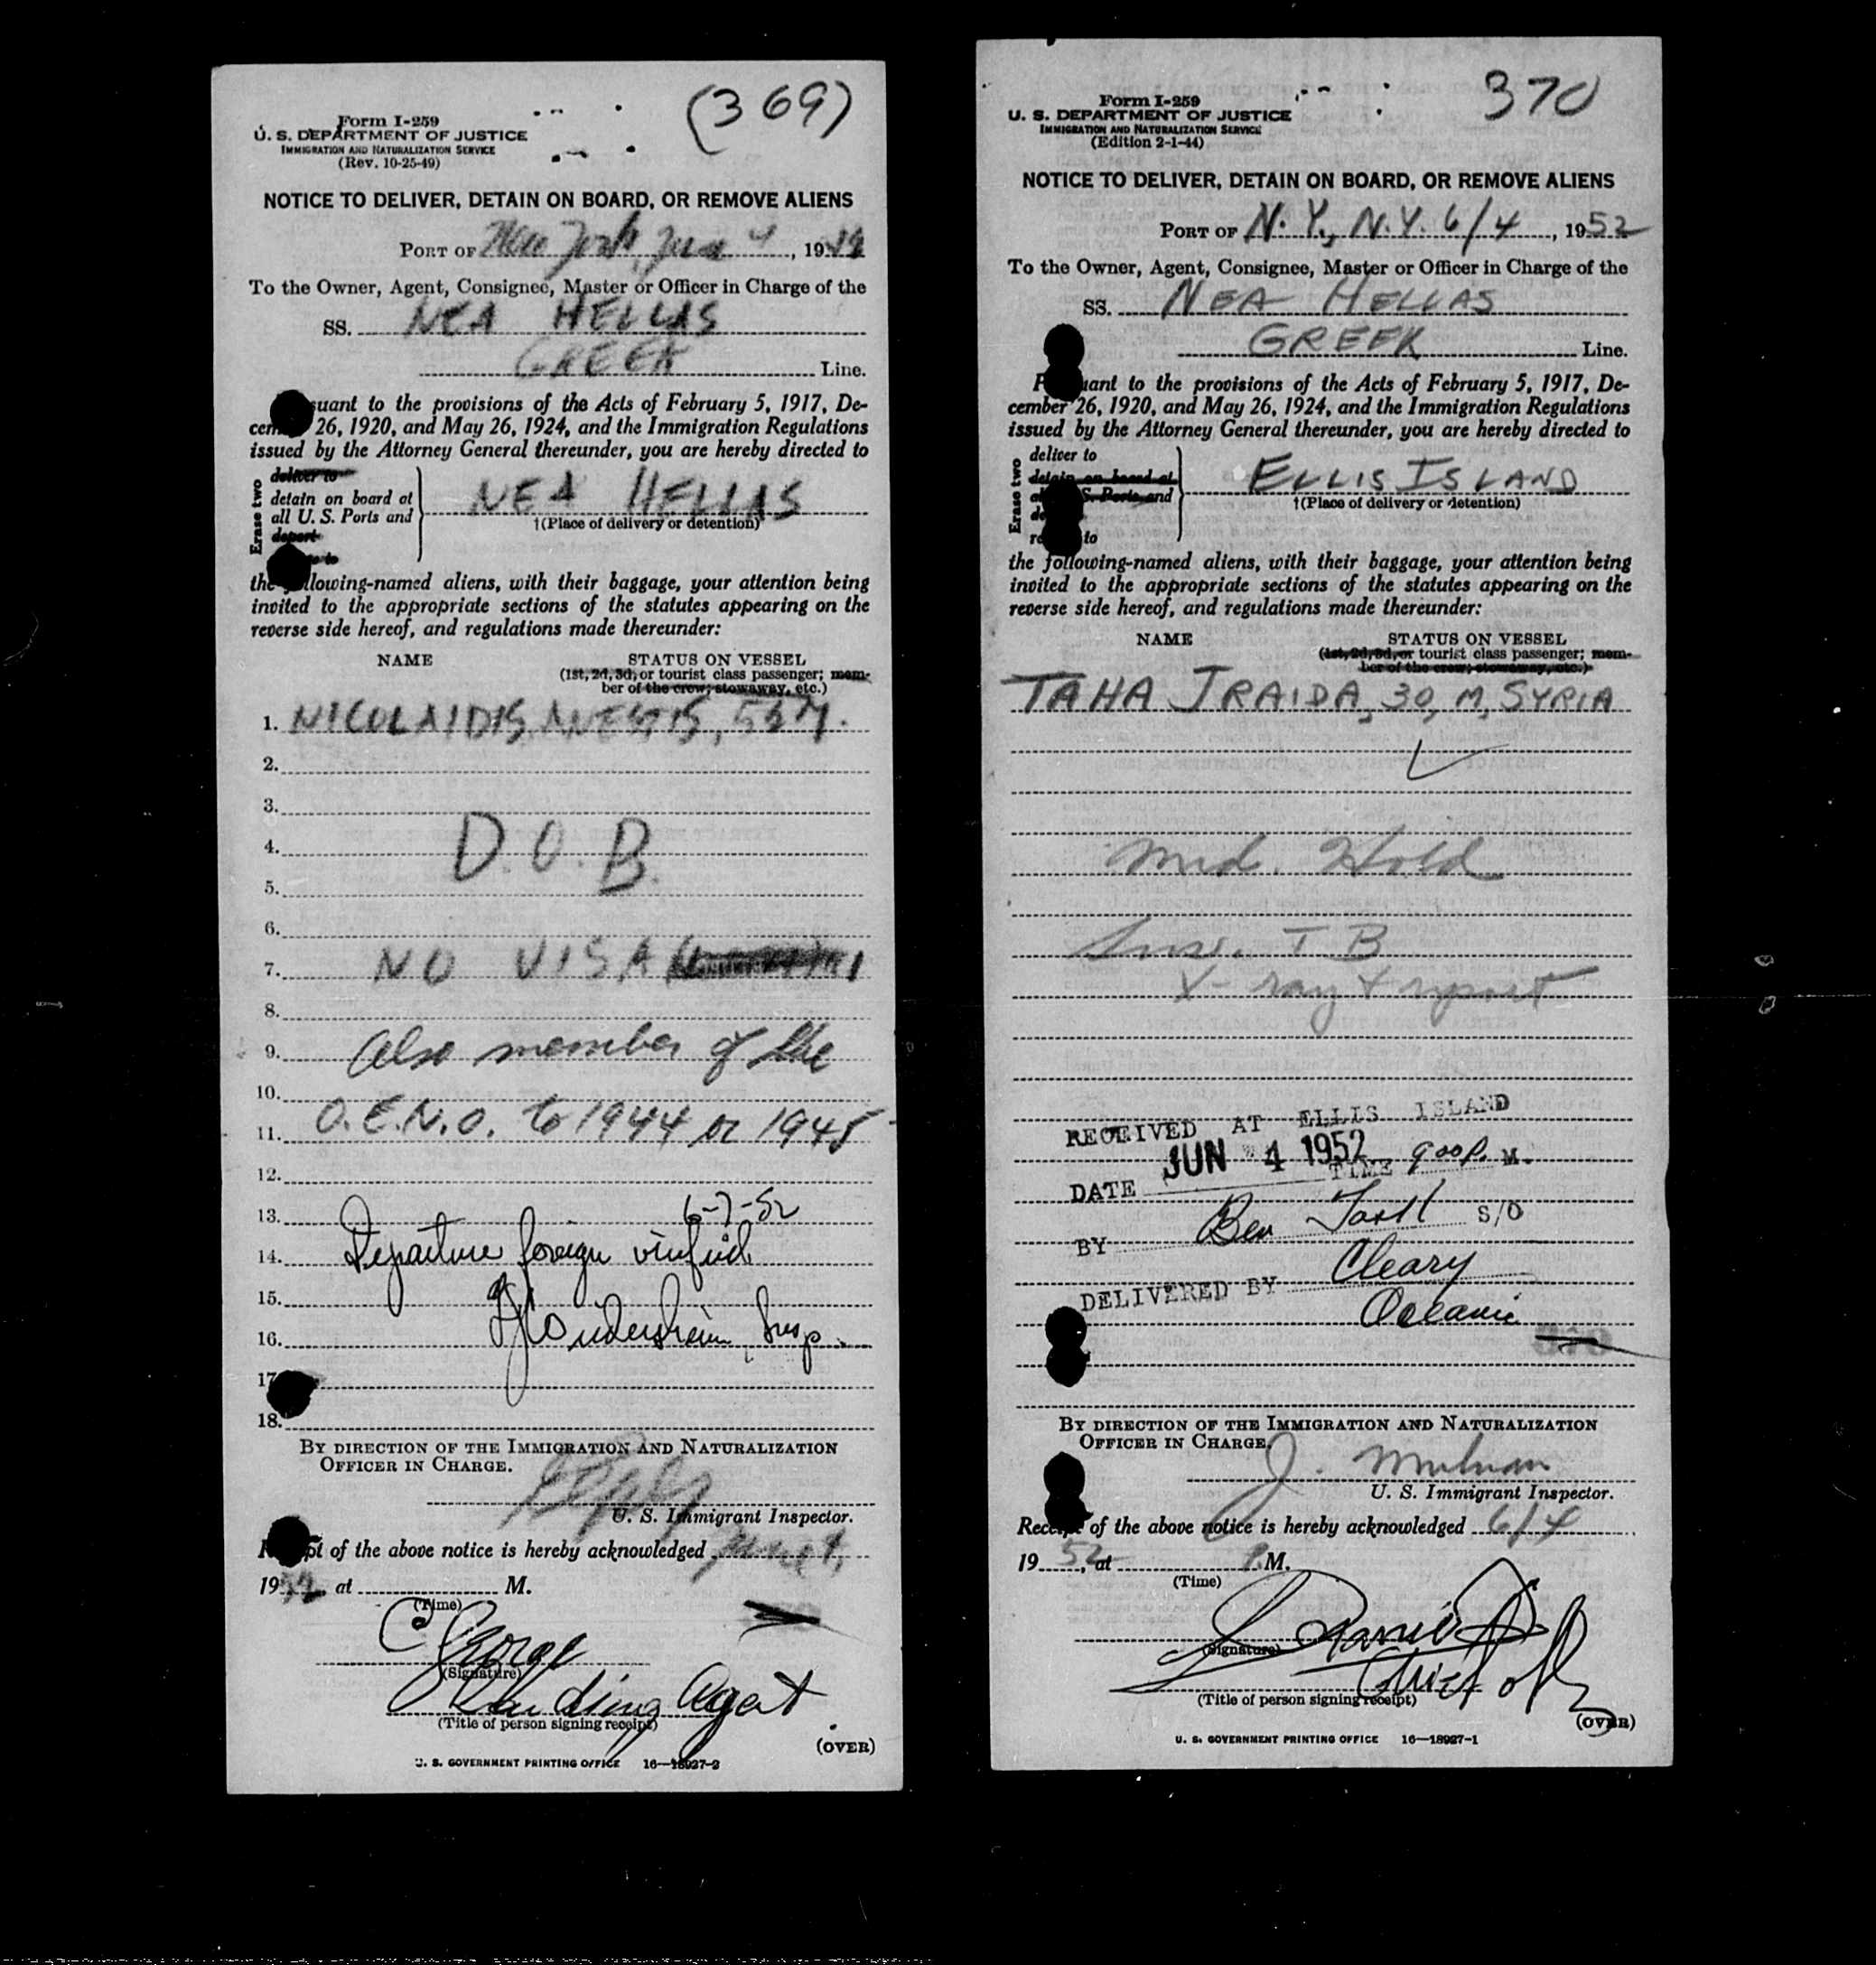 (369)
Form I-259
U. S. DEPARTMENT OF JUSTICE
IMMIGRATION AND NATURALIZATION SERVICE
(Rev. 10-25-49)
NOTICE TO DELIVER, DETAIN ON BOARD, OR REMOVE ALIENS
PORT OF New York, June 4, 19
To the Owner, Agent, Consignee, Master or Officer in Charge of the
SS. NEA HELLAS
GREEK Line.
suant to the provisions of the Acts of February 5, 1917, De-
cem 26, 1920, and May 26, 1924, and the Immigration Regulations
issued by the Attorney General thereunder, you are hereby directed to
Erase two
deliver to
detain on board at
all U. S. Ports and
deport
to
NEA HELLAS
†(Place of delivery or detention)
the llowing-named aliens, with their baggage, your attention being
invited to the appropriate sections of the statutes appearing on the
reverse side hereof, and regulations made thereunder:
NAME STATUS ON VESSEL
(1st, 2d, 3d, or tourist class passenger; mem-
ber of the crew; stowaway, etc.)
1. NICOLAIDIS, ANESTIS,
2.
3.
4. D.O.B.
5.
6.
7. NO VISA
8.
9. Also member of the
10.
11. O.E.N.O. to 1944 or 1945
12.
13. 6-7-52
14. Departure foreign verified
15.
16. Insp.
17
18.
BY DIRECTION OF THE IMMIGRATION AND NATURALIZATION
OFFICER IN CHARGE.
U. S. Immigrant Inspector.
R pt of the above notice is hereby acknowledged June 4,
1952, at M.
(Time)
C George
(Signature)
Landing Agent
(Title of person signing receipt)
(OVER)
U. S. GOVERNMENT PRINTING OFFICE 16—18927-2
370
Form I-259
U. S. DEPARTMENT OF JUSTICE
IMMIGRATION AND NATURALIZATION SERVICE
(Edition 2-1-44)
NOTICE TO DELIVER, DETAIN ON BOARD, OR REMOVE ALIENS
PORT OF N.Y., N.Y. 6/4, 1952
To the Owner, Agent, Consignee, Master or Officer in Charge of the
SS. NEA HELLAS
GREEK Line.
P uant to the provisions of the Acts of February 5, 1917, De-
cember 26, 1920, and May 26, 1924, and the Immigration Regulations
issued by the Attorney General thereunder, you are hereby directed to
Erase two
deliver to
detain on board at
al S. Ports and
de
re to
ELLIS ISLAND
†(Place of delivery or detention)
the following-named aliens, with their baggage, your attention being
invited to the appropriate sections of the statutes appearing on the
reverse side hereof, and regulations made thereunder:
NAME STATUS ON VESSEL
(1st, 2d, 3d, or tourist class passenger; mem-
ber of the crew; stowaway, etc.)
TAHA JRAIDA, 30, M, SYRIA
Med. Hold
T B
X-ray & report
RECEIVED AT ELLIS ISLAND
DATE JUN 4 1952 TIME 900 P. M.
BY Ben S/O
DELIVERED BY Cleary
Oceanic
370
BY DIRECTION OF THE IMMIGRATION AND NATURALIZATION
OFFICER IN CHARGE.
J.
U. S. Immigrant Inspector.
Receipt of the above notice is hereby acknowledged 6/4
1952, at P.M.
(Time)
(Signature)
Chief
(Title of person signing receipt)
(OVER)
U. S. GOVERNMENT PRINTING OFFICE 16—18927-1